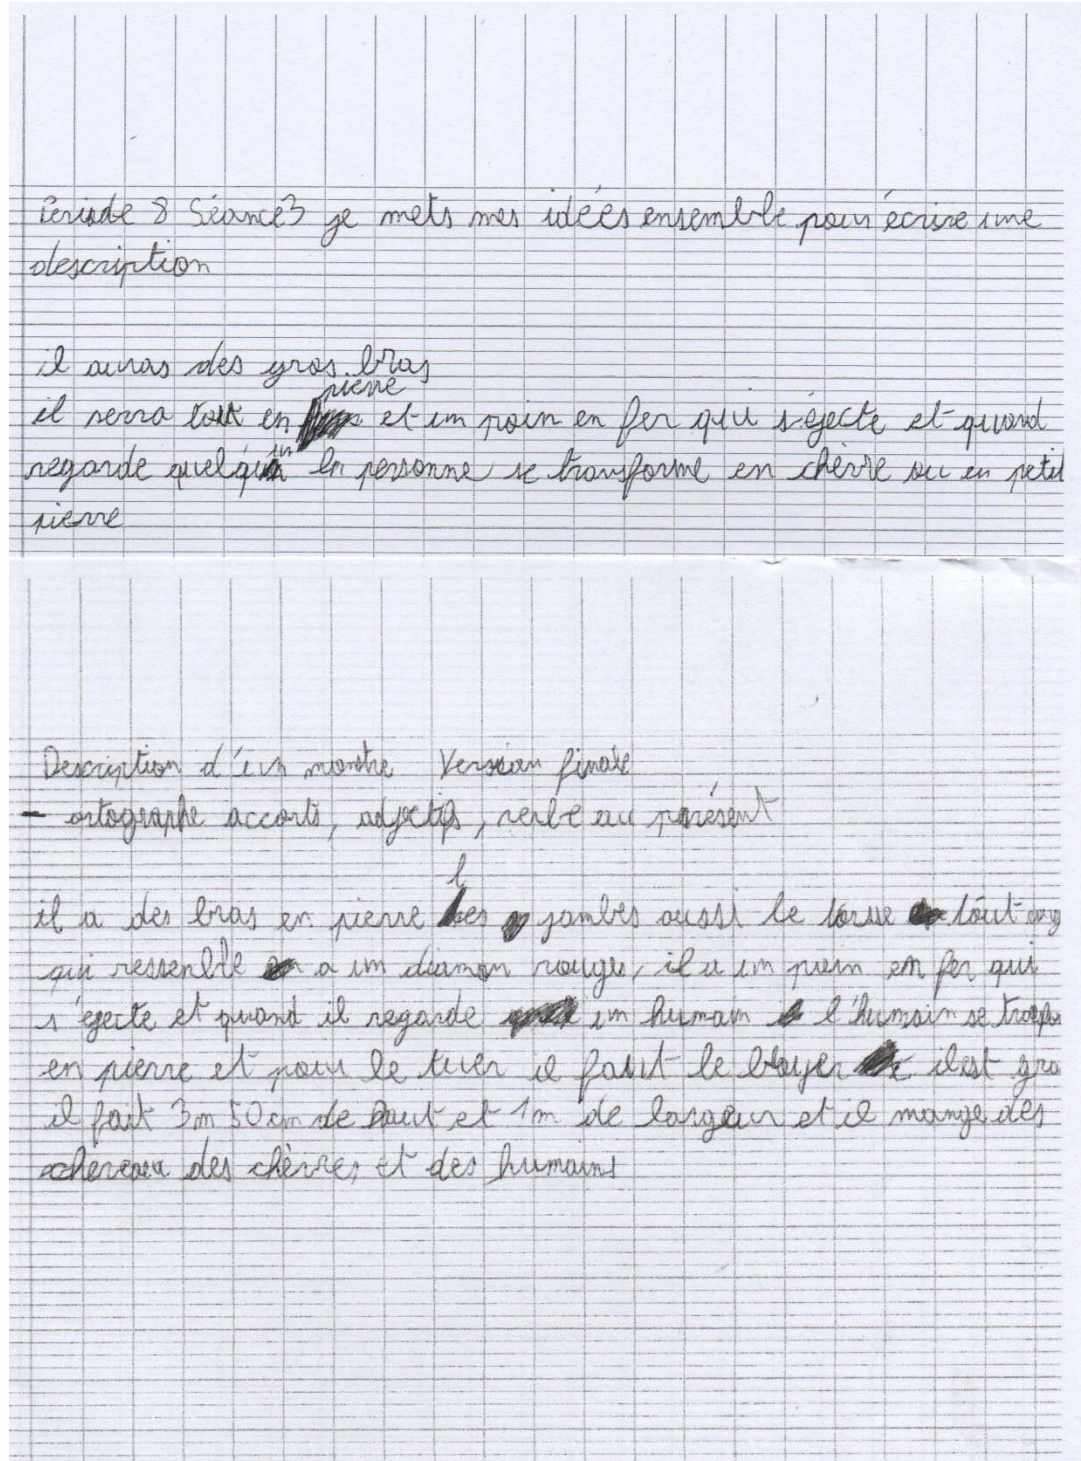 Periode 8 Séance3 je mets mes idées ensemble pour écrire une
description
il auras des gros bras
pierre
il serra tout en et un poin en fer qui s'éjecte et quand
regarde quelqu'un la personne se transforme en chèvre ou en petit
pierre
Description d'un monstre Version finale
- ortographe accorts, adjectifs, verbe au présent
il a des bras en pierre les jambes aussi le torse tout
qui ressenble a un diaman rouges, il a un poin en fer qui
s'ejecte et quand il regarde un humain l'humain se
en pierre et pour le tuer il faut le il est gro
il fait 3m 50 cm de haut et 1m de largeur et il mange des
des chèvres et des humains